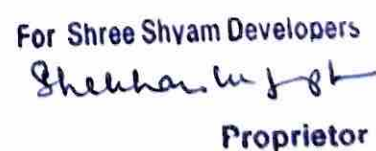 For Shree Shyam Developers
Proprietor